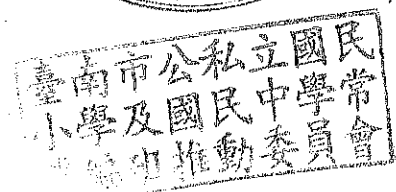 臺南市公私立國民
小學及國民中學常
推動委員會